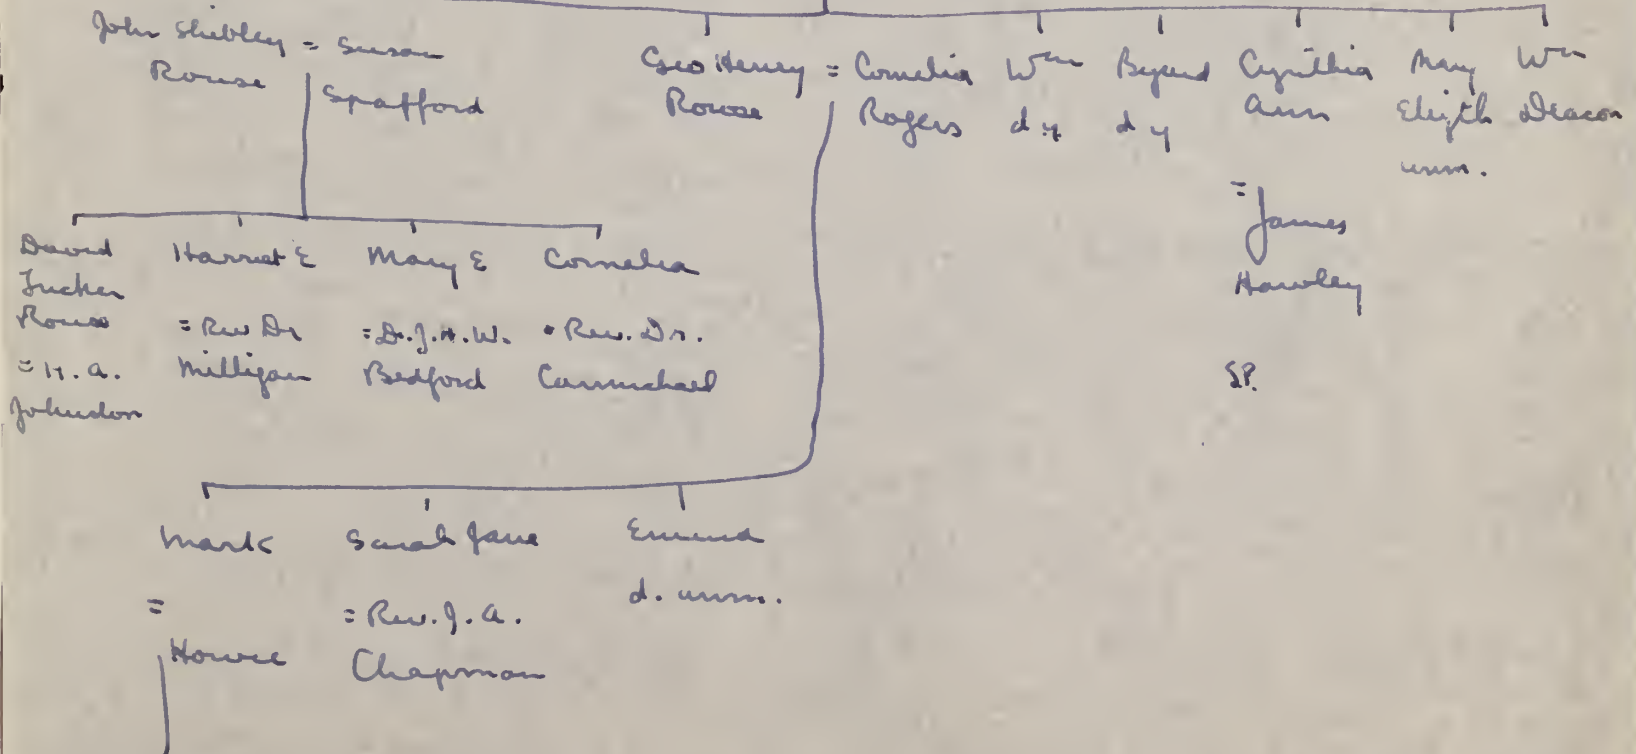 John Shibley = Susan
Rouse Spafford
Geo Henry = Cornelia
Rouse Rogers
Wm
d y
d y
Cynthia
Ann
= James
Hawley
S.P.
Mary
Elizth
unm.
Wm
Deacon
David
Tucker
Rouse
= H. A.
Johnston
Harriet E
= Rev Dr
Milligan
Mary E
= Dr. J. H. W.
Bedford
Cornelia
= Rev. Dr.
Carmichael
Mark
=
Howie
Sarah Jane
= Rev. J. A.
Chapman
Emma
d. unm.